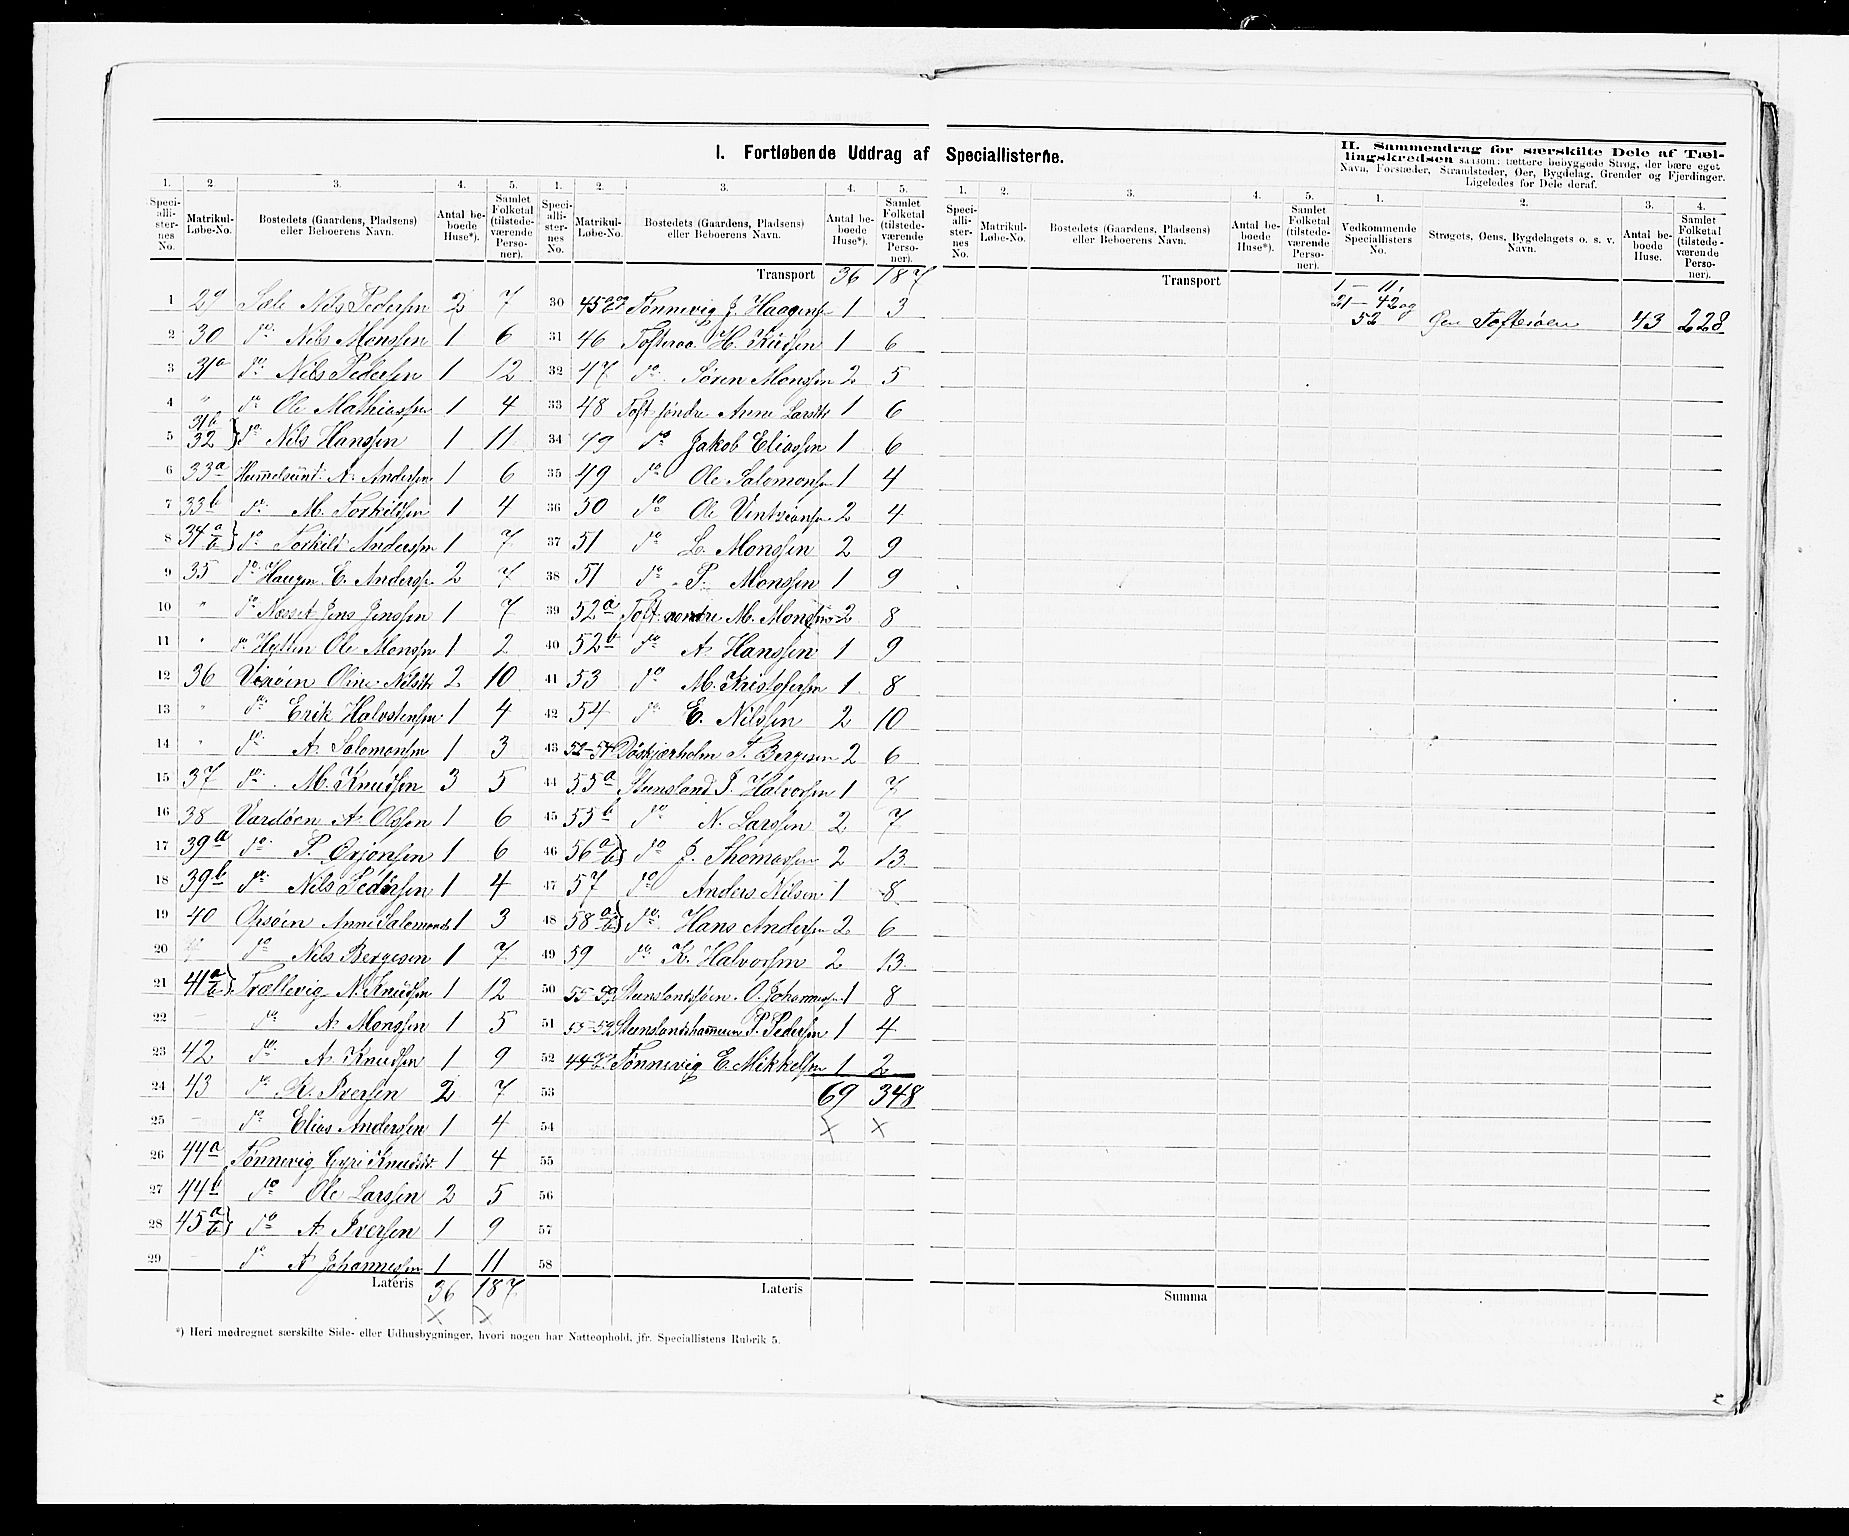 I. Fortløbende Uddrag af Speciallisterne.
II. Sammendrag for særskilte Dele af Tællingskredsen saasom: tættere bebyggede Strøg, der bære eget
Navn, Forstæder, Strandsteder, Øer, Bygdelag, Grender og Fjerdinger.
Ligeledes for Dele deraf.
1. 2 3. 4. 5. 1. 2. 3. 4. 5. 1. 2. 3. 4. 5. 1. 2. 3. 4.
Speciallisternes No. Matrikul-Løbe-No. Bostedets (Gaardens, Pladsens) eller Beboerens Navn. Antal beboede Huse*). Samlet Folketal (tilstedeværende Personer).
Speciallisternes No. Matrikul-Løbe-No. Bostedets (Gaardens, Pladsens) eller Beboerens Navn. Antal beboede Huse*). Samlet Folketal (tilstedeværende Personer).
Speciallisternes No. Matrikul-Løbe-No. Bostedets (Gaardens, Pladsens) eller Beboerens Navn. Antal beboede Huse*). Samlet Folketal (tilstedeværende Personer).
Vedkommende Speciallisters No. Strøgets, Øens, Bygdelagets o. s. v. Navn. Antal beboede Huse. Samlet Folketal (tilstedeværende Personer).
1 29 Sæle Nils Pedersen 2 7
2 30 do Nils Monssen 1 6
3 31a do Nils Pedersen 1 12
4 " do Ole Mathiassen 1 4
5 31b 32 } do Nils Hanssen 1 11
6 33a Hummelsund A. Andersen 1 6
7 33b do M. Torkildsen 1 4
8 34 a b } do Torkild Anderssen 1 7
9 35 do Haugen E. Anderss. 2 7
10 " do Nesset Jens Jenssen 1 7
11 " do Hytten Ole Monssen 1 2
12 36 Viksøen Oline Nilsdtr 2 10
13 " do Erik Halvstenssen 1 4
14 " do A. Salomonsen 1 3
15 37 do M. Knudsen 3 5
16 38 Vardøen A. Olssen 1 6
17 39a do P. Ørjonsen 1 6
18 39b do Nils Pedersen 1 4
19 40 Oxsøen Anne Salomonsd 1 3
20 " do Nils Bergesen 1 7
21 41 a b } Trællevig N. Knudsen 1 12
22 — do A. Monssen 1 5
23 42 do A. Knudsen 1 9
24 43 do K. Iversen 2 7
25 — do Elias Anderssen 1 4
26 44a Tønnevig Gyri Knudsdr. 1 4
27 44b do Ole Larssen 2 5
28 45 a b } do A. Iversen 1 9
29 — do A. Johannessen 1 11
Lateris 36 187
× ×
Transport 36 187
30 45 Tønnevig J. Haagens. 1 3
31 46 Tofteraa H. Knudsen 1 6
32 47 do Søren Monssen 2 5
33 48 Toft søndre Anne Larsdtr 1 6
34 49 do Jakob Eliassen 1 6
35 49 do Ole Salomons. 1 4
36 50 do Ole Vintziansen 2 4
37 51 do L. Monssen 2 9
38 51 do P. Monssen 1 9
39 52a Toft nordre M. Monssen 2 8
40 52b do A. Hanssen 1 9
41 53 do M. Kristofersen 1 8
42 54 do E. Nilssen 2 10
43 52–54 Døskjærholm T. Bergesen 2 6
44 55a Steensland J. Halvorsen 1 7
45 55b do N. Larssen 2 7
46 56 a b } do J. Thomassen 2 13
47 57 do Anders Nilsen 1 8
48 58 a b } do Hans Andersen 2 6
49 59 do K. Halvorsen 2 13
50 55–59 Steenslandsøen O. Johannessen 1 8
51 55–59 Steenslandshamren P. Pedersen 1 4
52 44 Tønnevig E. Mikkelsen 1 2
53 69 348
54 × ×
55
56
57
58
Lateris
Transport
Summa
1 – 11,
21 – 42 og
52 Øen Tofterøen 43 228
*) Heri medregnet særskilte Side- eller Udhusbygninger, hvori nogen har Natteophold, jfr. Speciallistens Rubrik 5.